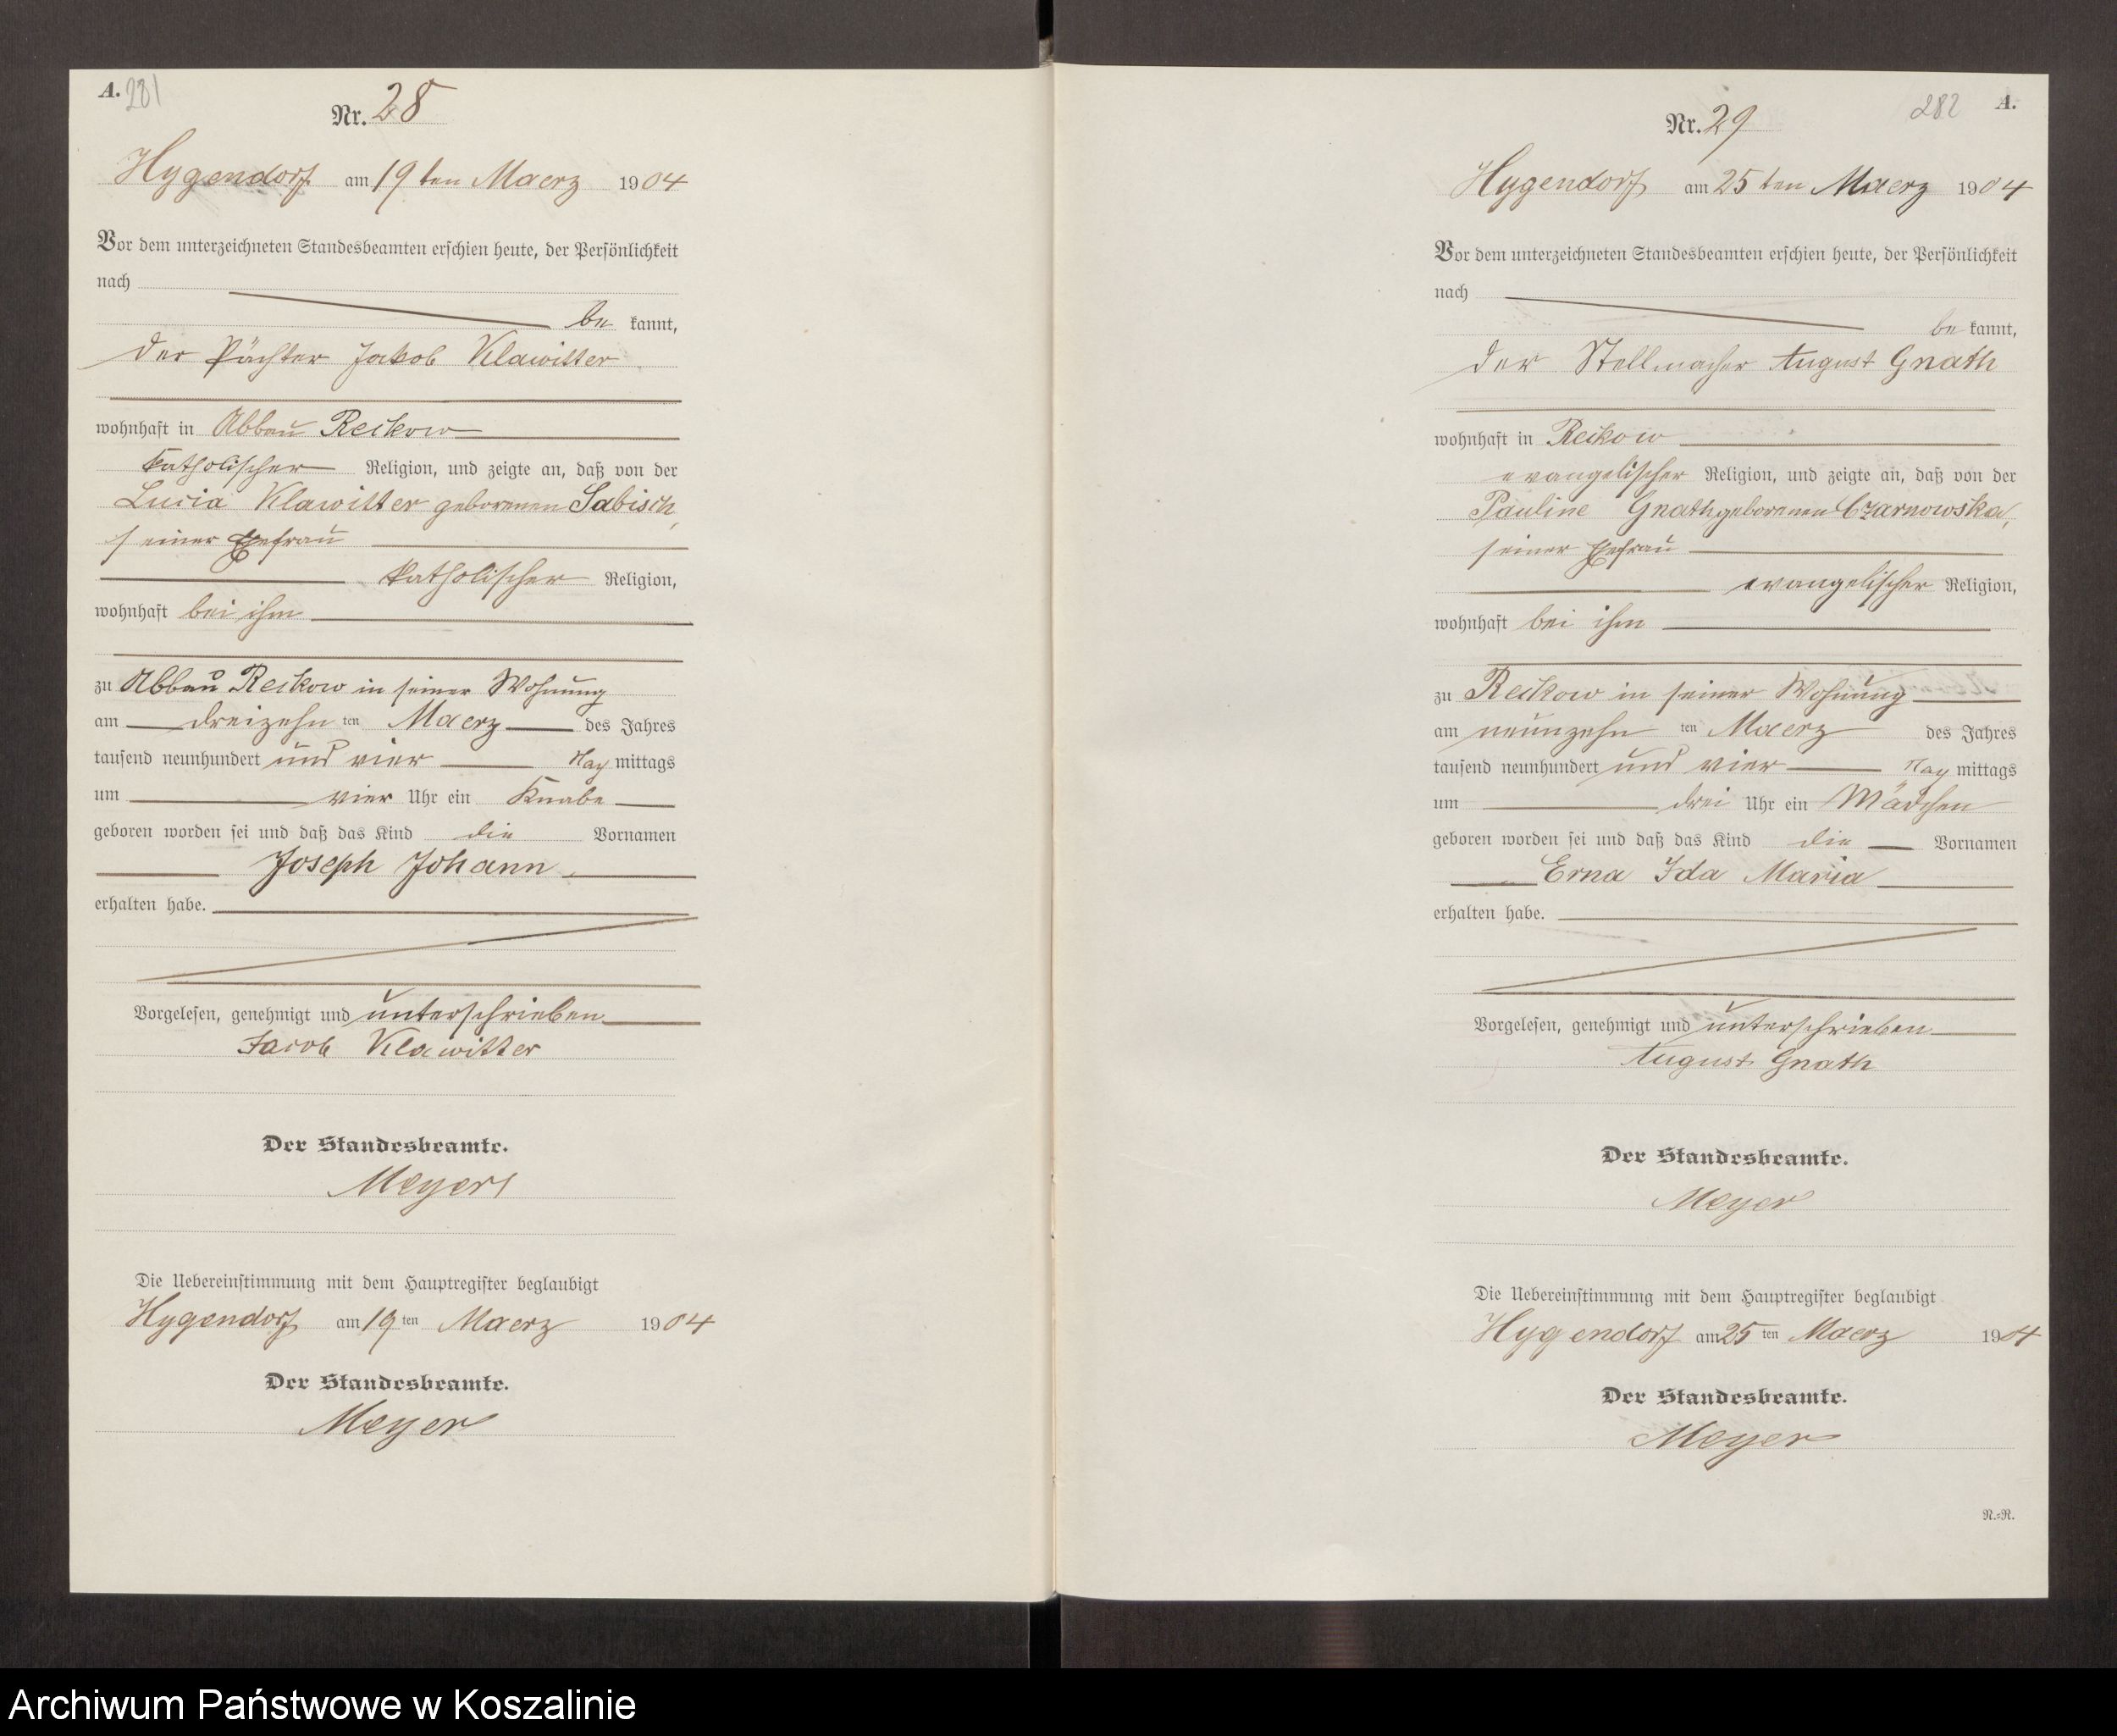 A. 281
Nr. 28
Hygendorf am 19ten Maerz 1904
Vor dem unterzeichneten Standesbeamten erschien heute, der Persönlichkeit
nach
be kannt,
der Pächter Jakob Klawitter
wohnhaft in Abbau Reikow
katholischer Religion, und zeigte an, daß von der
Lucia Klawitter geborenen Sabisch,
seiner Ehefrau
katholischer Religion,
wohnhaft bei ihm
zu Abbau Reikow in seiner Wohnung
am dreizehn ten Maerz des Jahres
tausend neunhundert und vier Nach mittags
um vier Uhr ein Knabe
geboren worden sei und daß das Kind die Vornamen
Joseph Johann
erhalten habe.
Vorgelesen, genehmigt und unterschrieben
Jacob Klawitter
Der Standesbeamte.
Meyer
Die Uebereinstimmung mit dem Hauptregister beglaubigt
Hygendorf am 19 ten Maerz 1904
Der Standesbeamte.
Meyer
282 A.
Nr. 29
Hygendorf am 25ten Maerz 1904
Vor dem unterzeichneten Standesbeamten erschien heute, der Persönlichkeit
nach
be kannt,
der Stellmacher August Gnath
wohnhaft in Reikow
evangelischer Religion, und zeigte an, daß von der
Pauline Gnath geborenen Czarnowska,
seiner Ehefrau
evangelischer Religion,
wohnhaft bei ihm
zu Reikow in seiner Wohnung
am neunzehn ten Maerz des Jahres
tausend neunhundert und vier Nach mittags
um drei Uhr ein Mädchen
geboren worden sei und daß das Kind die Vornamen
Erna Ida Maria
erhalten habe.
Vorgelesen, genehmigt und unterschrieben
August Gnath
Der Standesbeamte.
Meyer
Die Uebereinstimmung mit dem Hauptregister beglaubigt
Hygendorf am 25 ten Maerz 1904
Der Standesbeamte.
Meyer
R.=R.
Archiwum Państwowe w Koszalinie